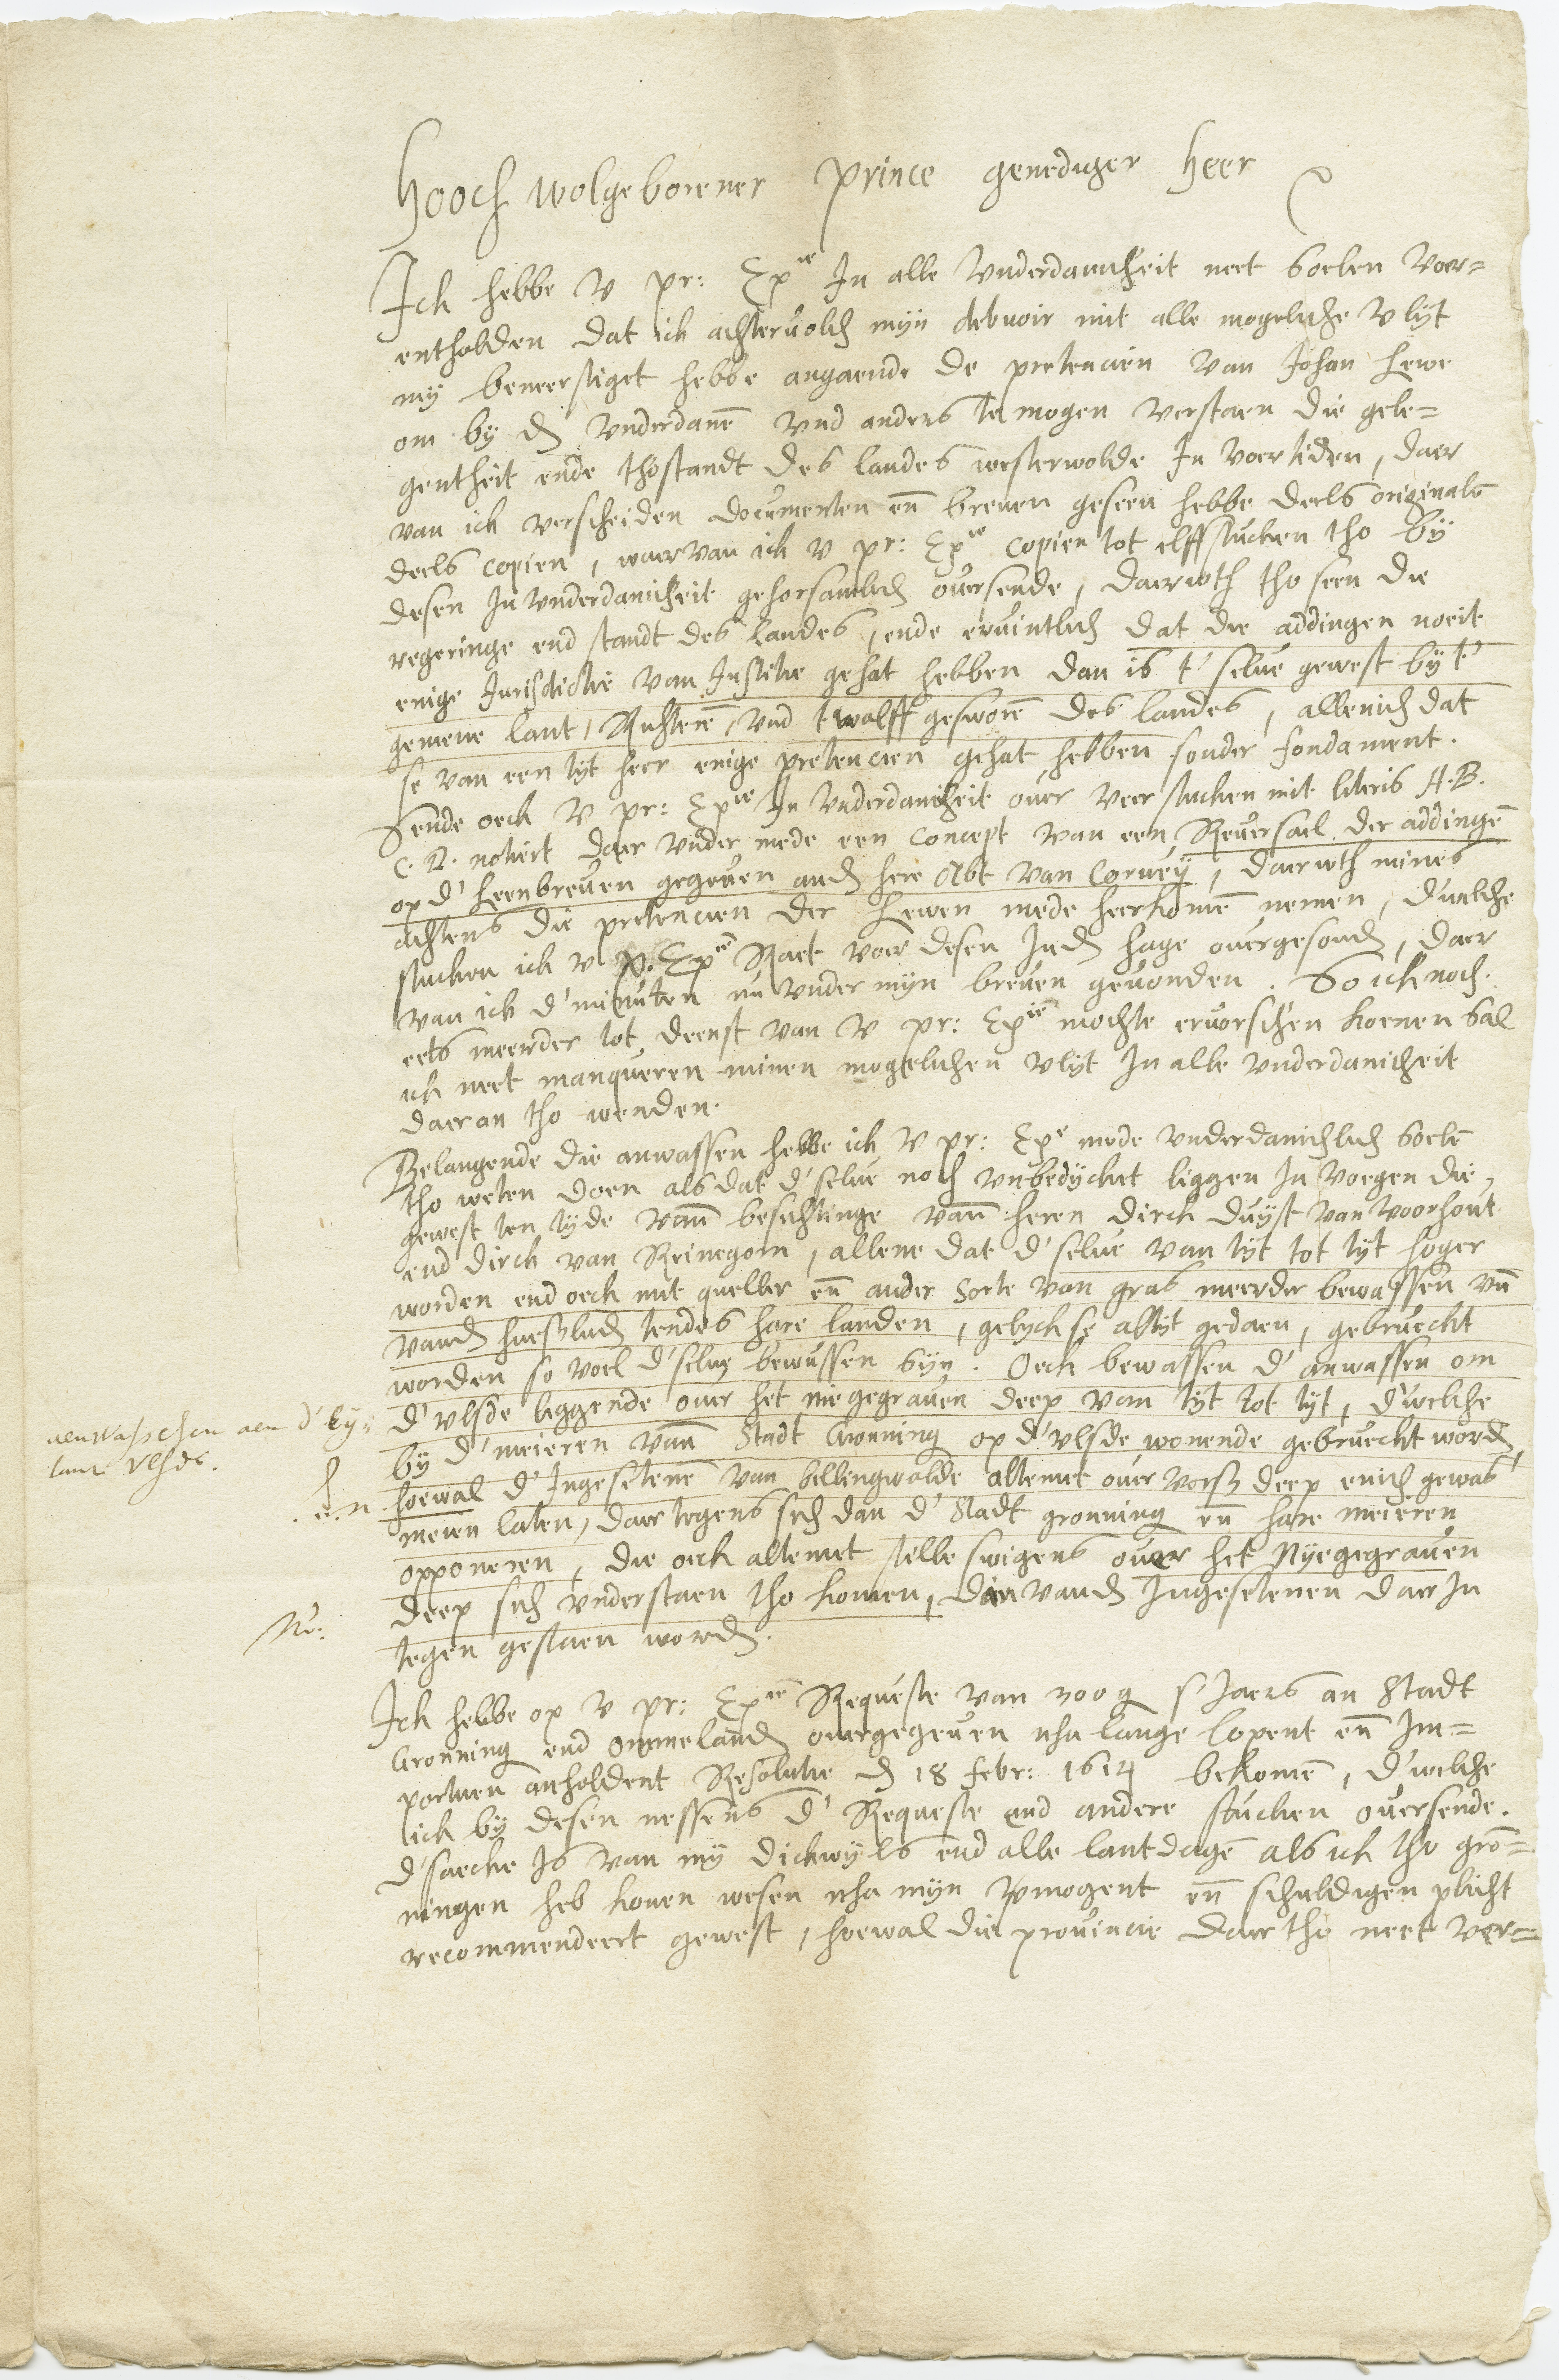 Hooch wolgeborener Prince genediger Heer
Ick hebbe V Pr: Ex^ie In alle Vnderdanicheit neet sollen Voer=
entholden dat ick achtervolch mijn debuoir mit alle mogeliche Vlijt
mij beneerstiget hebbe angaende de pretencien van Johan Lewe
om bij d vnderdanē vnd anders te mogen verstaen die gele=
gentheit ende thostandt des landes westerwolde In voertiden, daer
van ick verscheiden documenten eñ breuen geseen hebbe deels originals
deels copien, waer van ick V pr: Ex^ie copien tot elff stucken tho bij
desen In vnderdanicheit gehorsamlich ouersende, daerwth tho seen die
regeringe end standt des landes, ende eruintlich dat die addingen noeit
enige Jurisdictie van Justitie gehat hebben dan is t' selue gewest bij t'
gemene lant, Richterē, vnd twalff gesworē des landes, allenich dat
se van een tijt heer enige pretencien gehat hebben sonder fondament.
Sende oeck V pr: Ex^ie In Vnderdanicheit ouer veer stucken mit literis A.B.
C.D. notiert daer vnder mede een concept van een Reuersael der addingē
op d' Leenbreuen gegeuen and here Abt van Coruey, daerwth mines
achtens die pretencien der Lewen mede heerkomē nemen, d'welche
stucken ick V P. Ex^ie Raet voer desen Ind hage ouergesond, daer
van ick d' minuten nu vnder mijn breuen geuonden. So ick noch
eets meerder tot deenst van V pr: Ex^ie mochte eruorschen koenen sal
ick neet manqueren minen mogelichen Vlijt In alle vnderdanicheit
daer an tho wenden.
Belangende die anwassen hebbe ick V pr: Ex^e mede vnderdanichlich sollē
tho weten doen als dat d' selue noch vnbedijcket liggen In voegen die
gewest ten tijde vañ besichtinge vañ heren Dirck Duijst van Voorhout
end Dirck van Reinegom, allene dat d' selue van tijt tot tijt hoger
worden end oeck mit queller eñ ander sorte van gras meerder bewassen vñ
vand huesluid tendes hare landen, gelijck se altijt gedaen, gebrueckt
worden so voel d' selue bewussen sijn. Oeck bewassen d' anwassen om
d' vlsde liggende ouer het niegegrauen deep van tijt tot tijt, d'welche
bij d' meieren vañ Stadt Gronning op d' vlsde wonende gebrueckt word,
hoewal d' Ingesetenē van bellingwolde altemet ouer vors deep enich gewas
meien laten, daer tegens sich dan d' Stadt gronning eñ hare meieren
opponeren, die oeck altemet stelle swigens ouer het Nijegegrauen
deep sich vnderstaen tho komen, dan vand Ingesetenen daer In
tegen gestaen word.
aenwasschen aen d' Eij=
lant Vlsde.
Ick hebbe op V pr: Ex^ie Requeste van 7009 s'Jaers an Stadt
Gronning end Ommeland ouergegeuen nha lange lopent eñ Im=
portuen anholdent Resolutie d 18 febr: 1614 bekomē, d'welche
ick bij desen neffens d' Requeste end andere stucken ouersende.
d' saecke Is van mij dickwijls end alle lantdagē als ick tho gro=
ningen heb konen wesen nha mijn Vmogent eñ schuldigen plicht
recommendeert gewest, hoewal die prouincie daer tho neet ver=